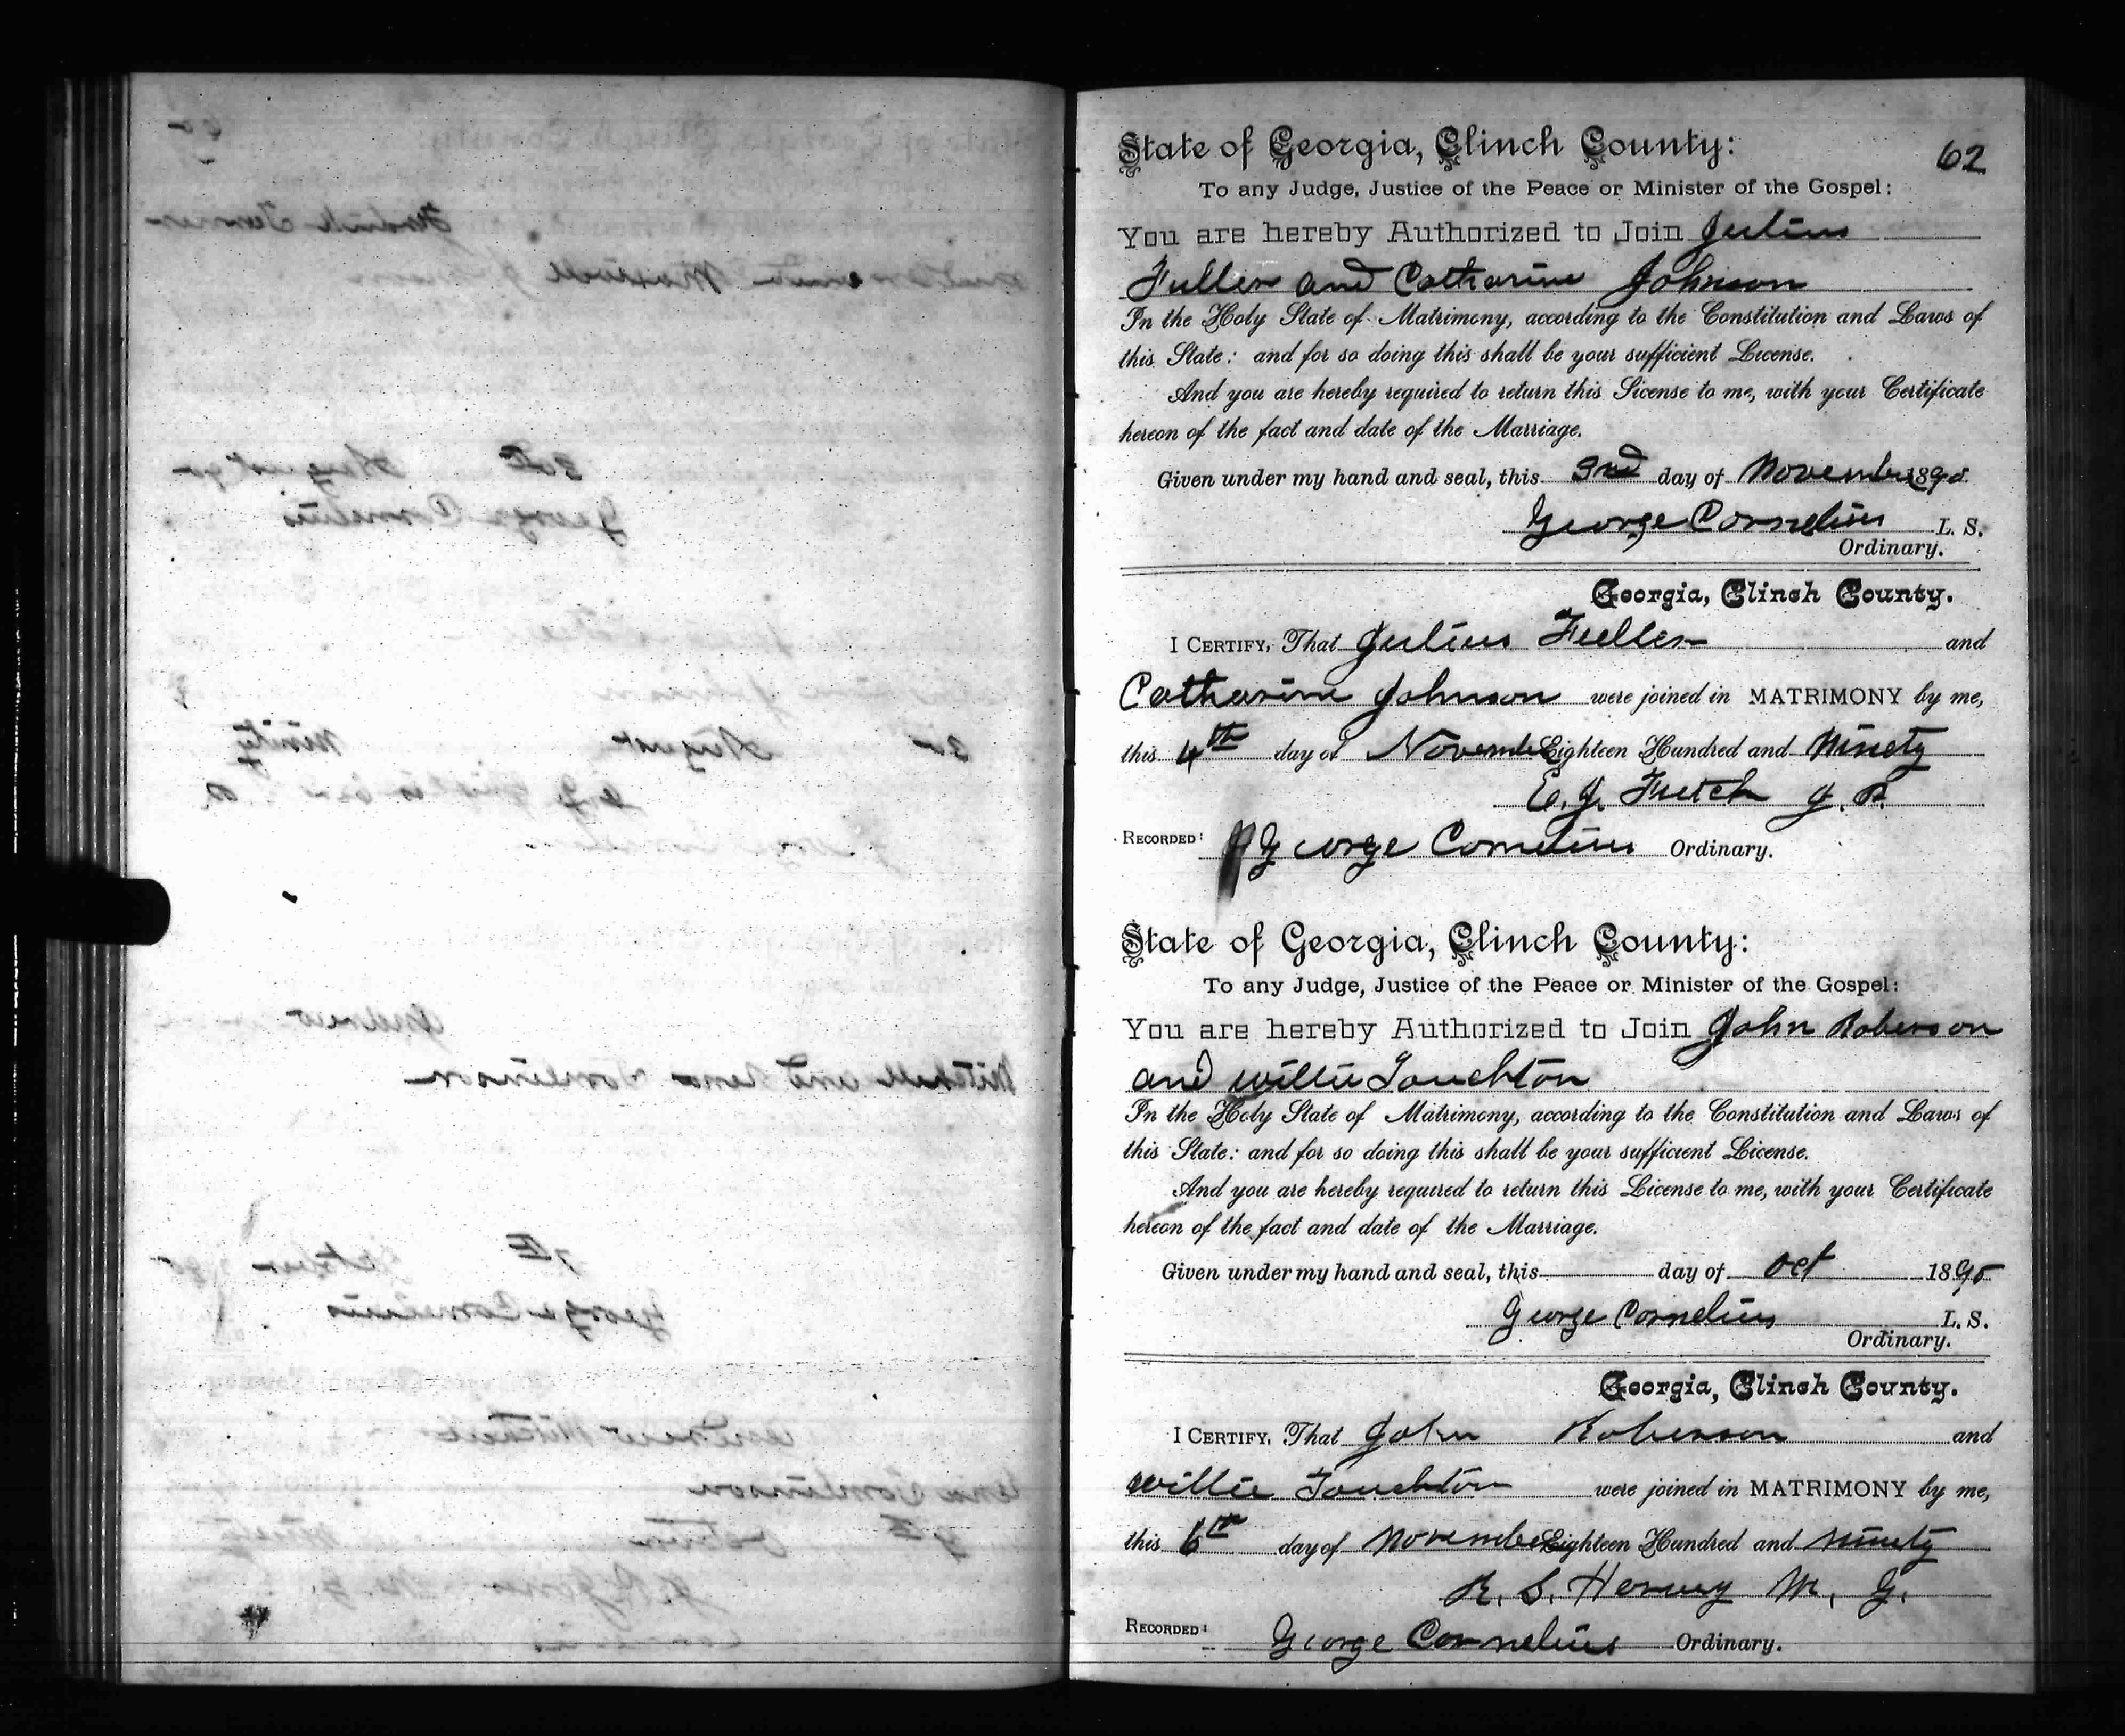 State of Georgia, Clinch County:
62
To any Judge, Justice of the Peace or Minister of the Gospel:
You are hereby Authorized to Join Julius
Fuller and Catharine Johnson
In the Holy State of Matrimony, according to the Constitution and Laws of
this State: and for so doing this shall be your sufficient License.
And you are hereby required to return this License to me, with your Certificate
hereon of the fact and date of the Marriage.
Given under my hand and seal, this 3rd day of November 1890
George Cornelius L. S.
Ordinary.
Georgia, Clinch County.
I CERTIFY, That Julius Fuller and
Catharine Johnson were joined in MATRIMONY by me,
this 4th day of November Eighteen Hundred and Ninety
E. J. Futch J. P.
RECORDED: George Cornelius Ordinary.
State of Georgia, Clinch County:
To any Judge, Justice of the Peace or Minister of the Gospel:
You are hereby Authorized to Join John Roberson
and Willie Touchton
In the Holy State of Matrimony, according to the Constitution and Laws of
this State: and for so doing this shall be your sufficient License.
And you are hereby required to return this License to me, with your Certificate
hereon of the fact and date of the Marriage.
Given under my hand and seal, this day of Oct 1890
George Cornelius L. S.
Ordinary.
Georgia, Clinch County.
I CERTIFY, That John Roberson and
Willie Touchton were joined in MATRIMONY by me,
this 6th day of November Eighteen Hundred and ninety
R. S. M. G.
RECORDED: George Cornelius Ordinary.